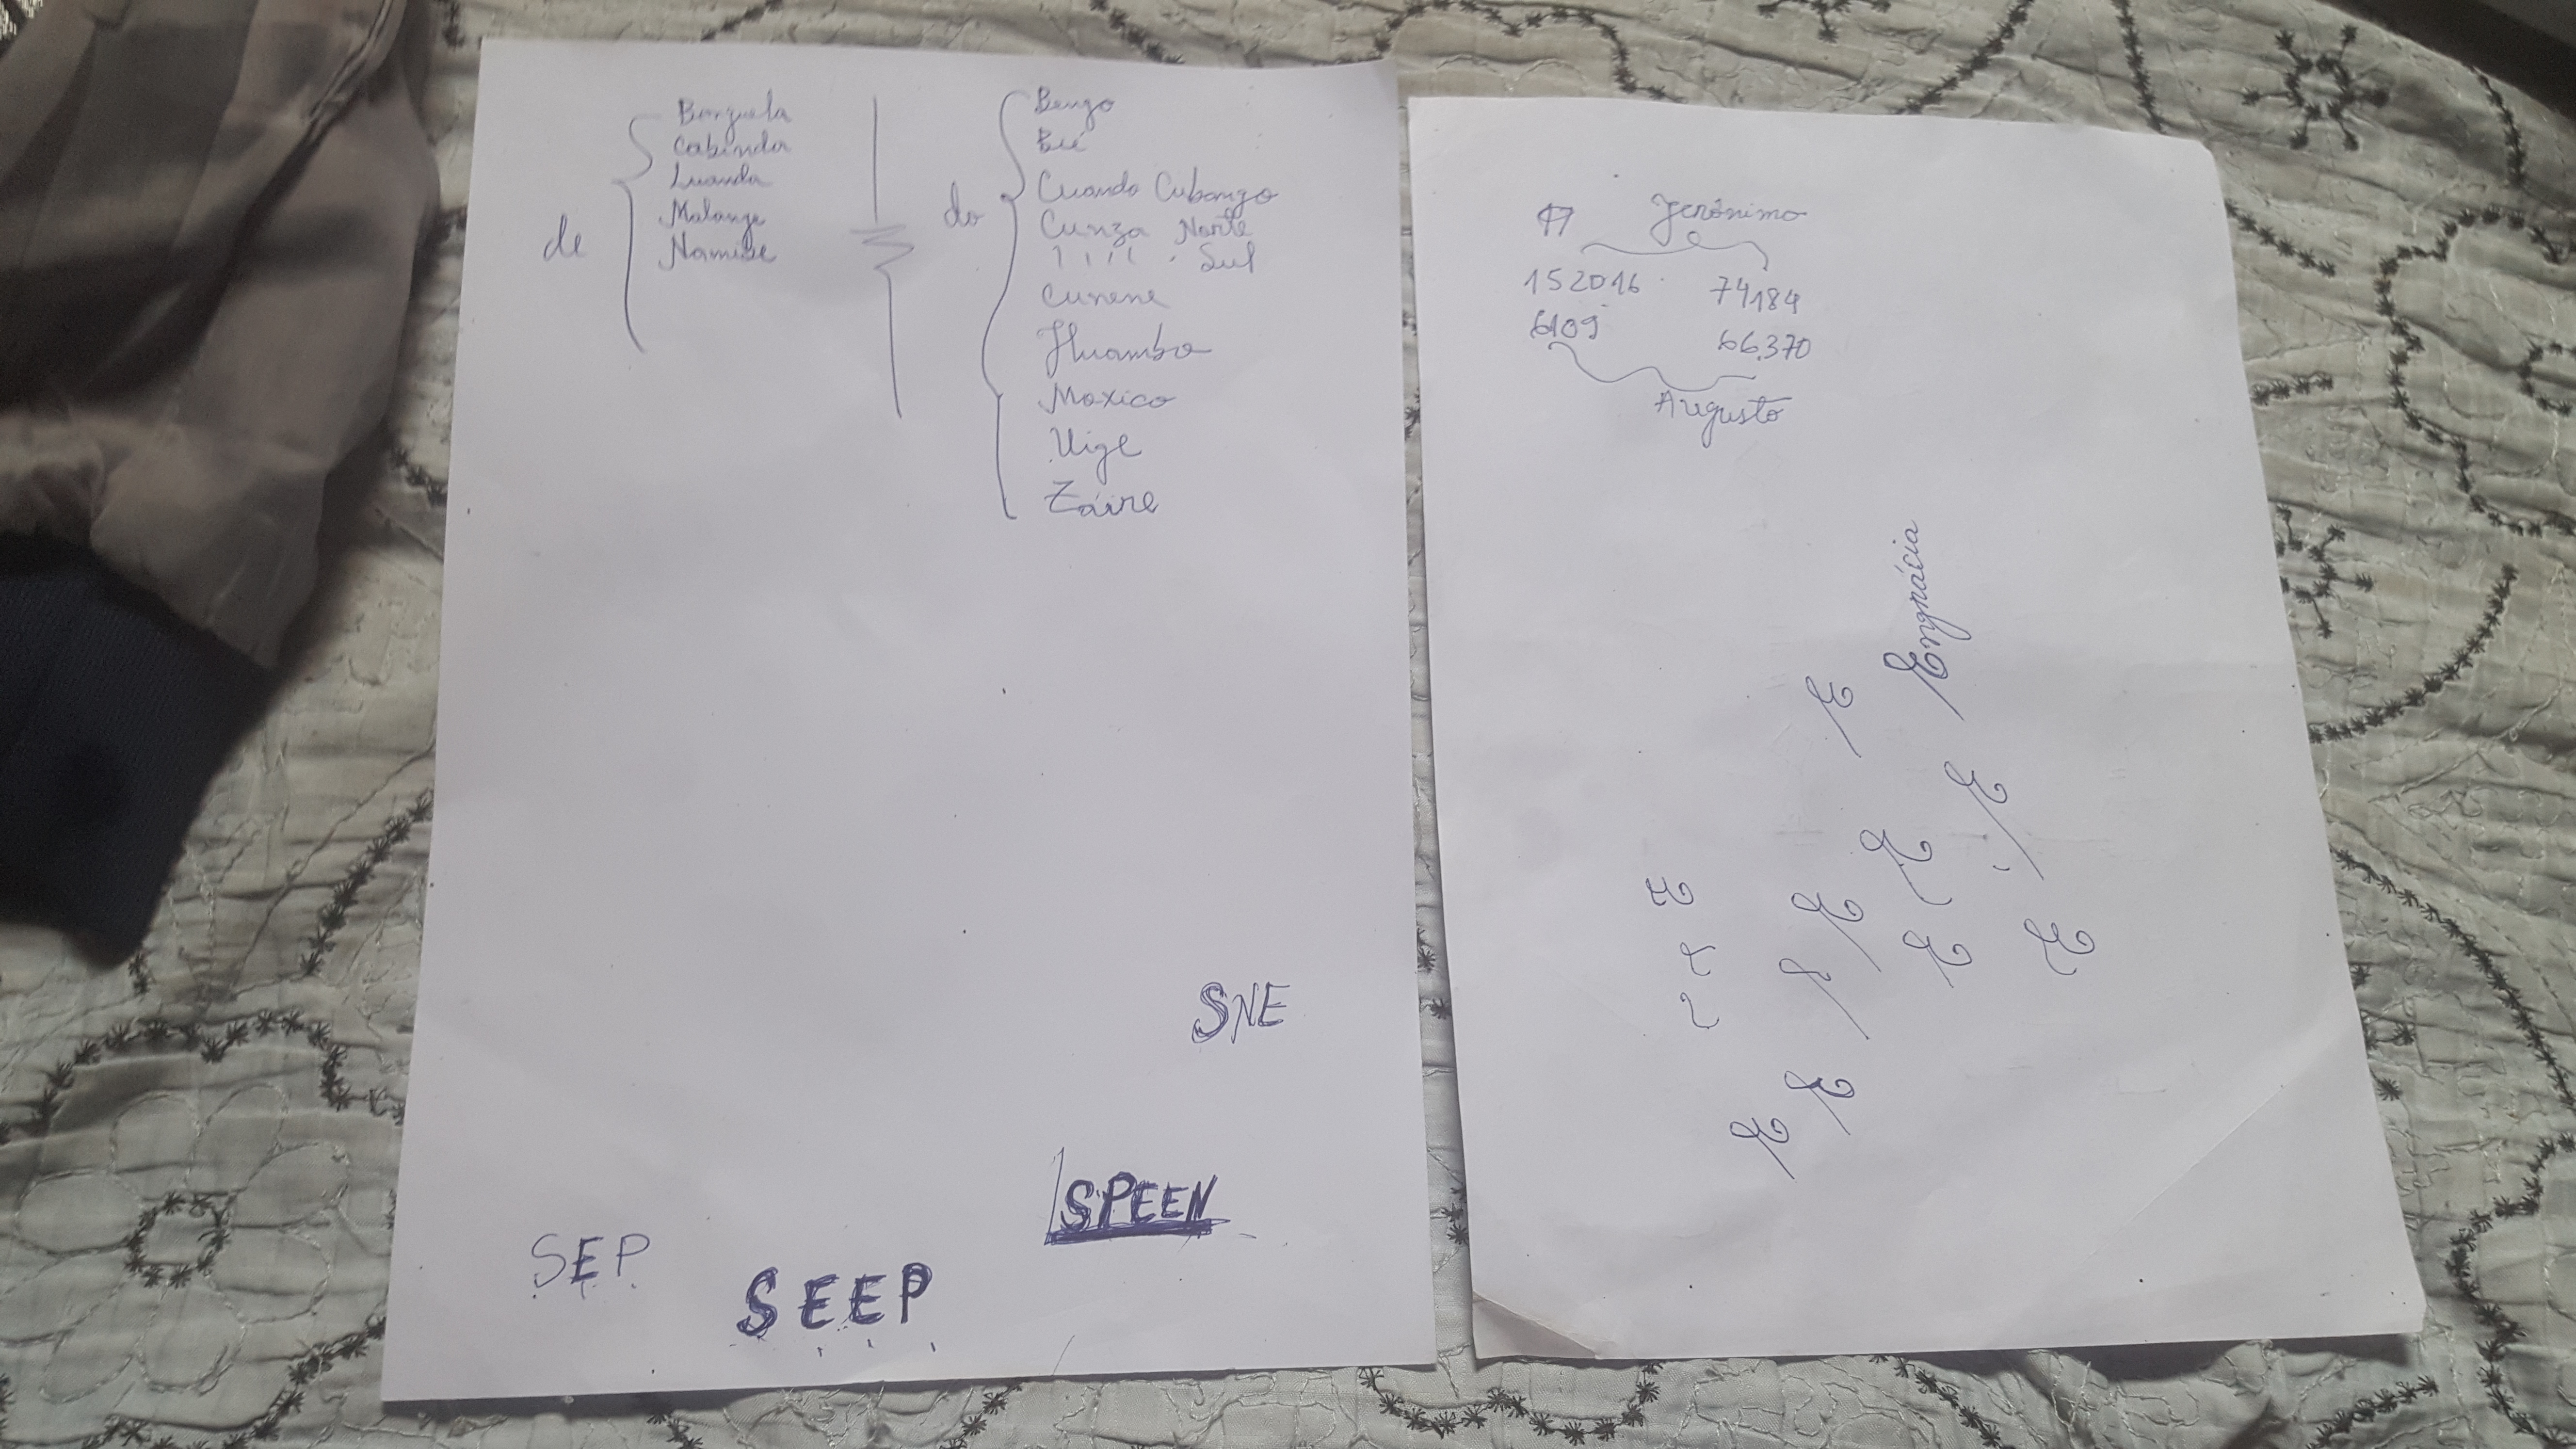 de
Benguela
Cabinda
Luanda
Malange
Namibe
do
Bengo
Bié
Cuando Cubango
Cunza Norte
" " Sul
Cunene
Huambo
Moxico
Uige
Záire
SNE
SPEEN
SEP
SEEP
Jerónimo
152016 74184
6109 66.370
Augusto
Engrácia
E
E
E
E
E
E
E
E
E